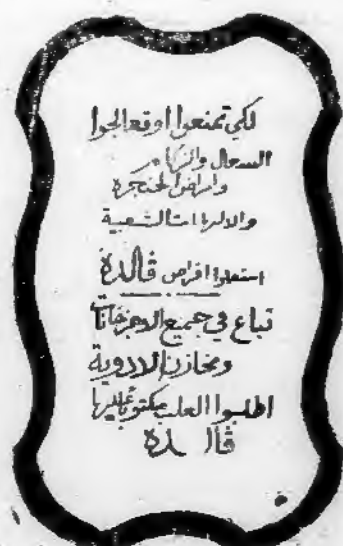 لكي تمنعوا اوتعالجوا
السعال والزكام
وامراض الحنجرة
والالتهابات الشعبية
استعملوا اقراص ڤالدة
تباع في جميع الاجزخانات
ومخازن الادوية
اطلبوا العلب مكتوبا عليها
ڤالدة